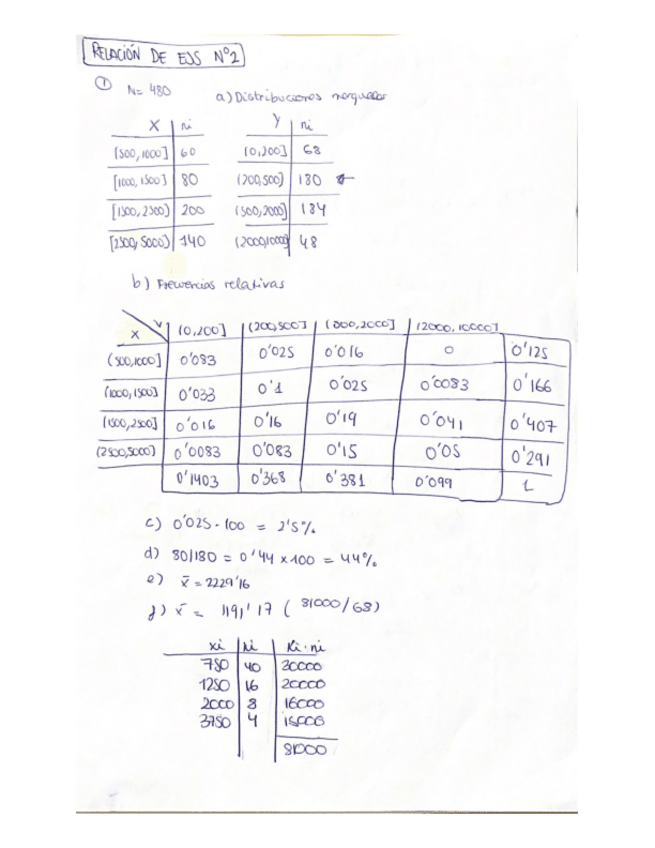 RELACIÓN DE EJS Nº2
① N= 480 a) Distribuciones marginales
X ni Y ni
[500,1000] 60 (0,200] 68
[1000,1500] 80 (200,500] 180 ←
[1500,2500] 200 (500,2000] 184
[2500,5000) 140 (2000,10000] 48
b) Frecuencias relativas
X Y (0,200] (200,500] (500,2000] (2000,10000]
(500,1000] 0'083 0'025 0'016 0 0'125
(1000,1500] 0'033 0'1 0'025 0'0083 0'166
(1500,2500] 0'016 0'16 0'19 0'041 0'407
(2500,5000) 0'0083 0'083 0'15 0'05 0'291
0'1403 0'368 0'381 0'099 1
c) 0'025 · 100 = 2'5%
d) 80/180 = 0'44 x 100 = 44%
e) x̄ = 2229'16
f) x̄ = 1191'17 ( 81000/68)
xi ni xi·ni
750 40 30000
1250 16 20000
2000 8 16000
3750 4 15000
81000